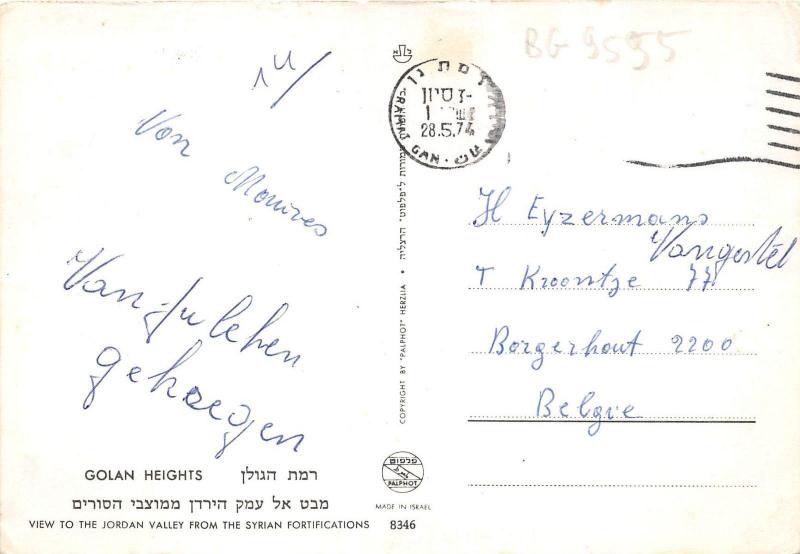 BG 9595
14/
Von
Mourves
Van Julehen
gekregen
GOLAN HEIGHTS רמת הגולן
מבט אל עמק הירדן ממוצבי הסורים
VIEW TO THE JORDAN VALLEY FROM THE SYRIAN FORTIFICATIONS 8346
רמת גן
28.5.74
RAMAT GAN
COPYRIGHT BY "PALPHOT" HERZLIA • הרצליה "פלפוט"
פלפוט
PALPHOT
MADE IN ISRAEL
H Eyzermans
Vangestel
T Kroontje 77
Borgerhout 2200
Belgie